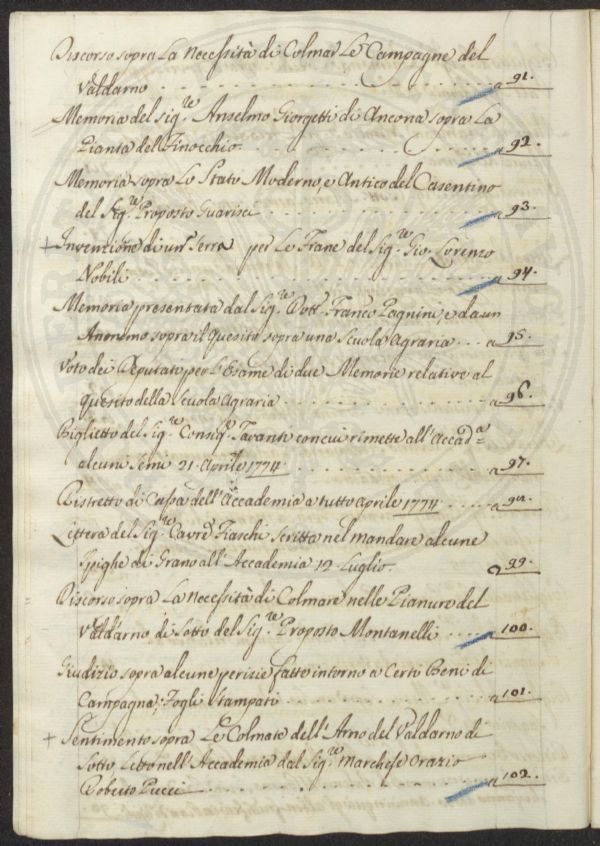 Discorso sopra La necessità di Colmar Le Campagne del
Valdarno . . . . . . . . . . a 91.
Memoria del Sig.re Anselmo Giorgetti di Ancona sopra La
Pianta del Finocchio . . . . . . . . . . a 92.
Memoria sopra Lo Stato Moderno, e Antico del Casentino
del Sig.re Proposto Guarisci . . . . . . . . . . a 93.
+ Invenzione di un' Serra per Le Frane del Sig.re Gio. Lorenzo
Nobili . . . . . . . . . . a 94.
Memoria presentata dal Sig.re Dott. Franco Pagnini, e da un
Anonimo sopra il Quesito sopra una Scuola Agraria . . . a 95.
Voto dei Deputati per l'Esame di due Memorie relative al
quesito della Scuola Agraria . . . . . . . . . . a 96.
Biglietto del Sig.re Consig.re Tavanti con cui rimette all'Accad.a
alcuni Semi 21. Aprile 1774 . . . . . . . . . . a 97.
Ristretto di Cassa dell'Accademia a tutto Aprile 1774 . . . . a 98.
Lettera del Sig.re Cavre Fiaschi scritta nel mandare alcune
spighe di Grano all'Accademia 12. Luglio. a 99.
Discorso sopra La necessità di Colmare nelle Pianure del
Vald'arno di Sotto del Sig.re Proposto Montanelli . . . . a 100.
Giudizio sopra alcune perizie fatte intorno a Certi Beni di
Campagna; Fogli Stampati . . . . . . . . . . a 101.
+ Sentimento sopra Le Colmate dell'Arno del Valdarno di
Sotto Letto nell'Accademia dal Sig.re Marchese Orazio
Roberto Pucci . . . . . . . . . . a 102.